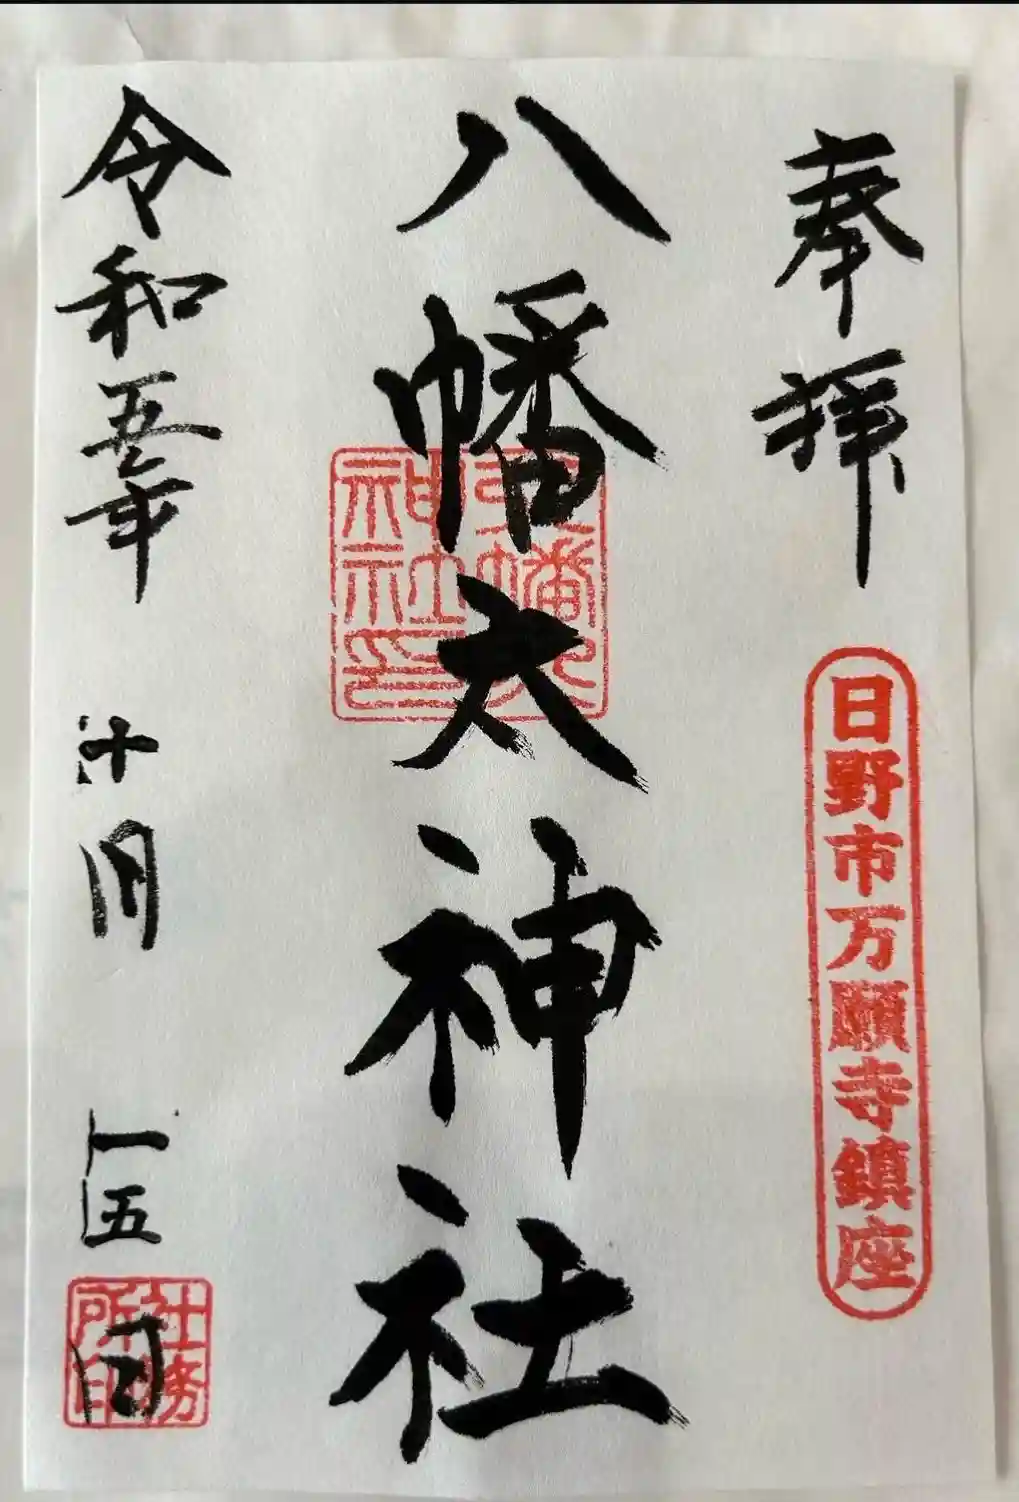 奉拝
日野市万願寺鎮座
八幡大神社
八幡大神社印
令和五年 十月 一五日
社務所印